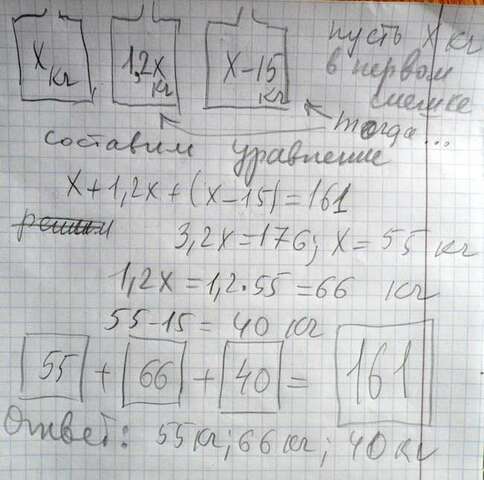 x кг 1,2x кг x-15 кг
пусть x кг
в первом
мешке
тогда...
составим уравнение
x+1,2x+(x-15)=161
решим
3,2x=176; x=55 кг
1,2x=1,2·55=66 кг
55-15=40 кг
55 + 66 + 40 = 161
Ответ: 55кг; 66кг; 40кг